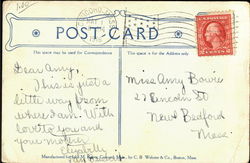 POST CARD
This space may be used for Correspondence
This space is for the Address only
Dear Amy,
This is just a
little way from
where I am. With
love to you and
your mother
Miss Amy Bowie
27 Lincoln St
New Bedford
Mass.
Manufactured for by C. B. Webster & Co., Boston, Mass.